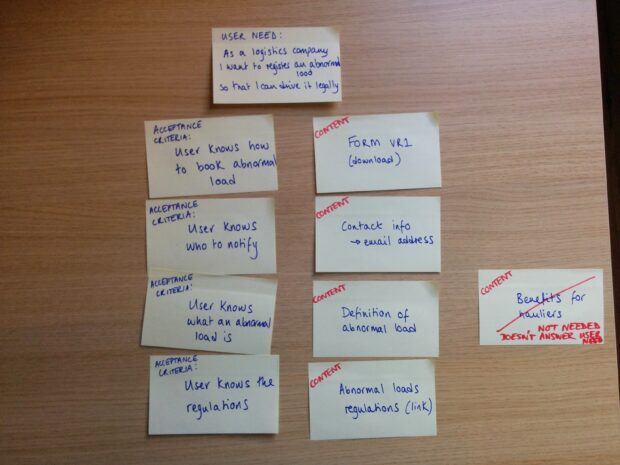 USER NEED:
As a logistics company
I want to register an abnormal
load
so that I can drive it legally
ACCEPTANCE
CRITERIA:
User knows how
to book abnormal
load
CONTENT
FORM VR1
(download)
ACCEPTANCE
CRITERIA:
User knows
who to notify
CONTENT
Contact info
→ email address
ACCEPTANCE
CRITERIA:
User knows
what an abnormal
load is
CONTENT
Definition of
abnormal load
CONTENT
Benefits for
hauliers
NOT NEEDED
DOESN'T ANSWER USER
NEED
ACCEPTANCE
CRITERIA:
User knows the
regulations
CONTENT
Abnormal loads
regulations (link)